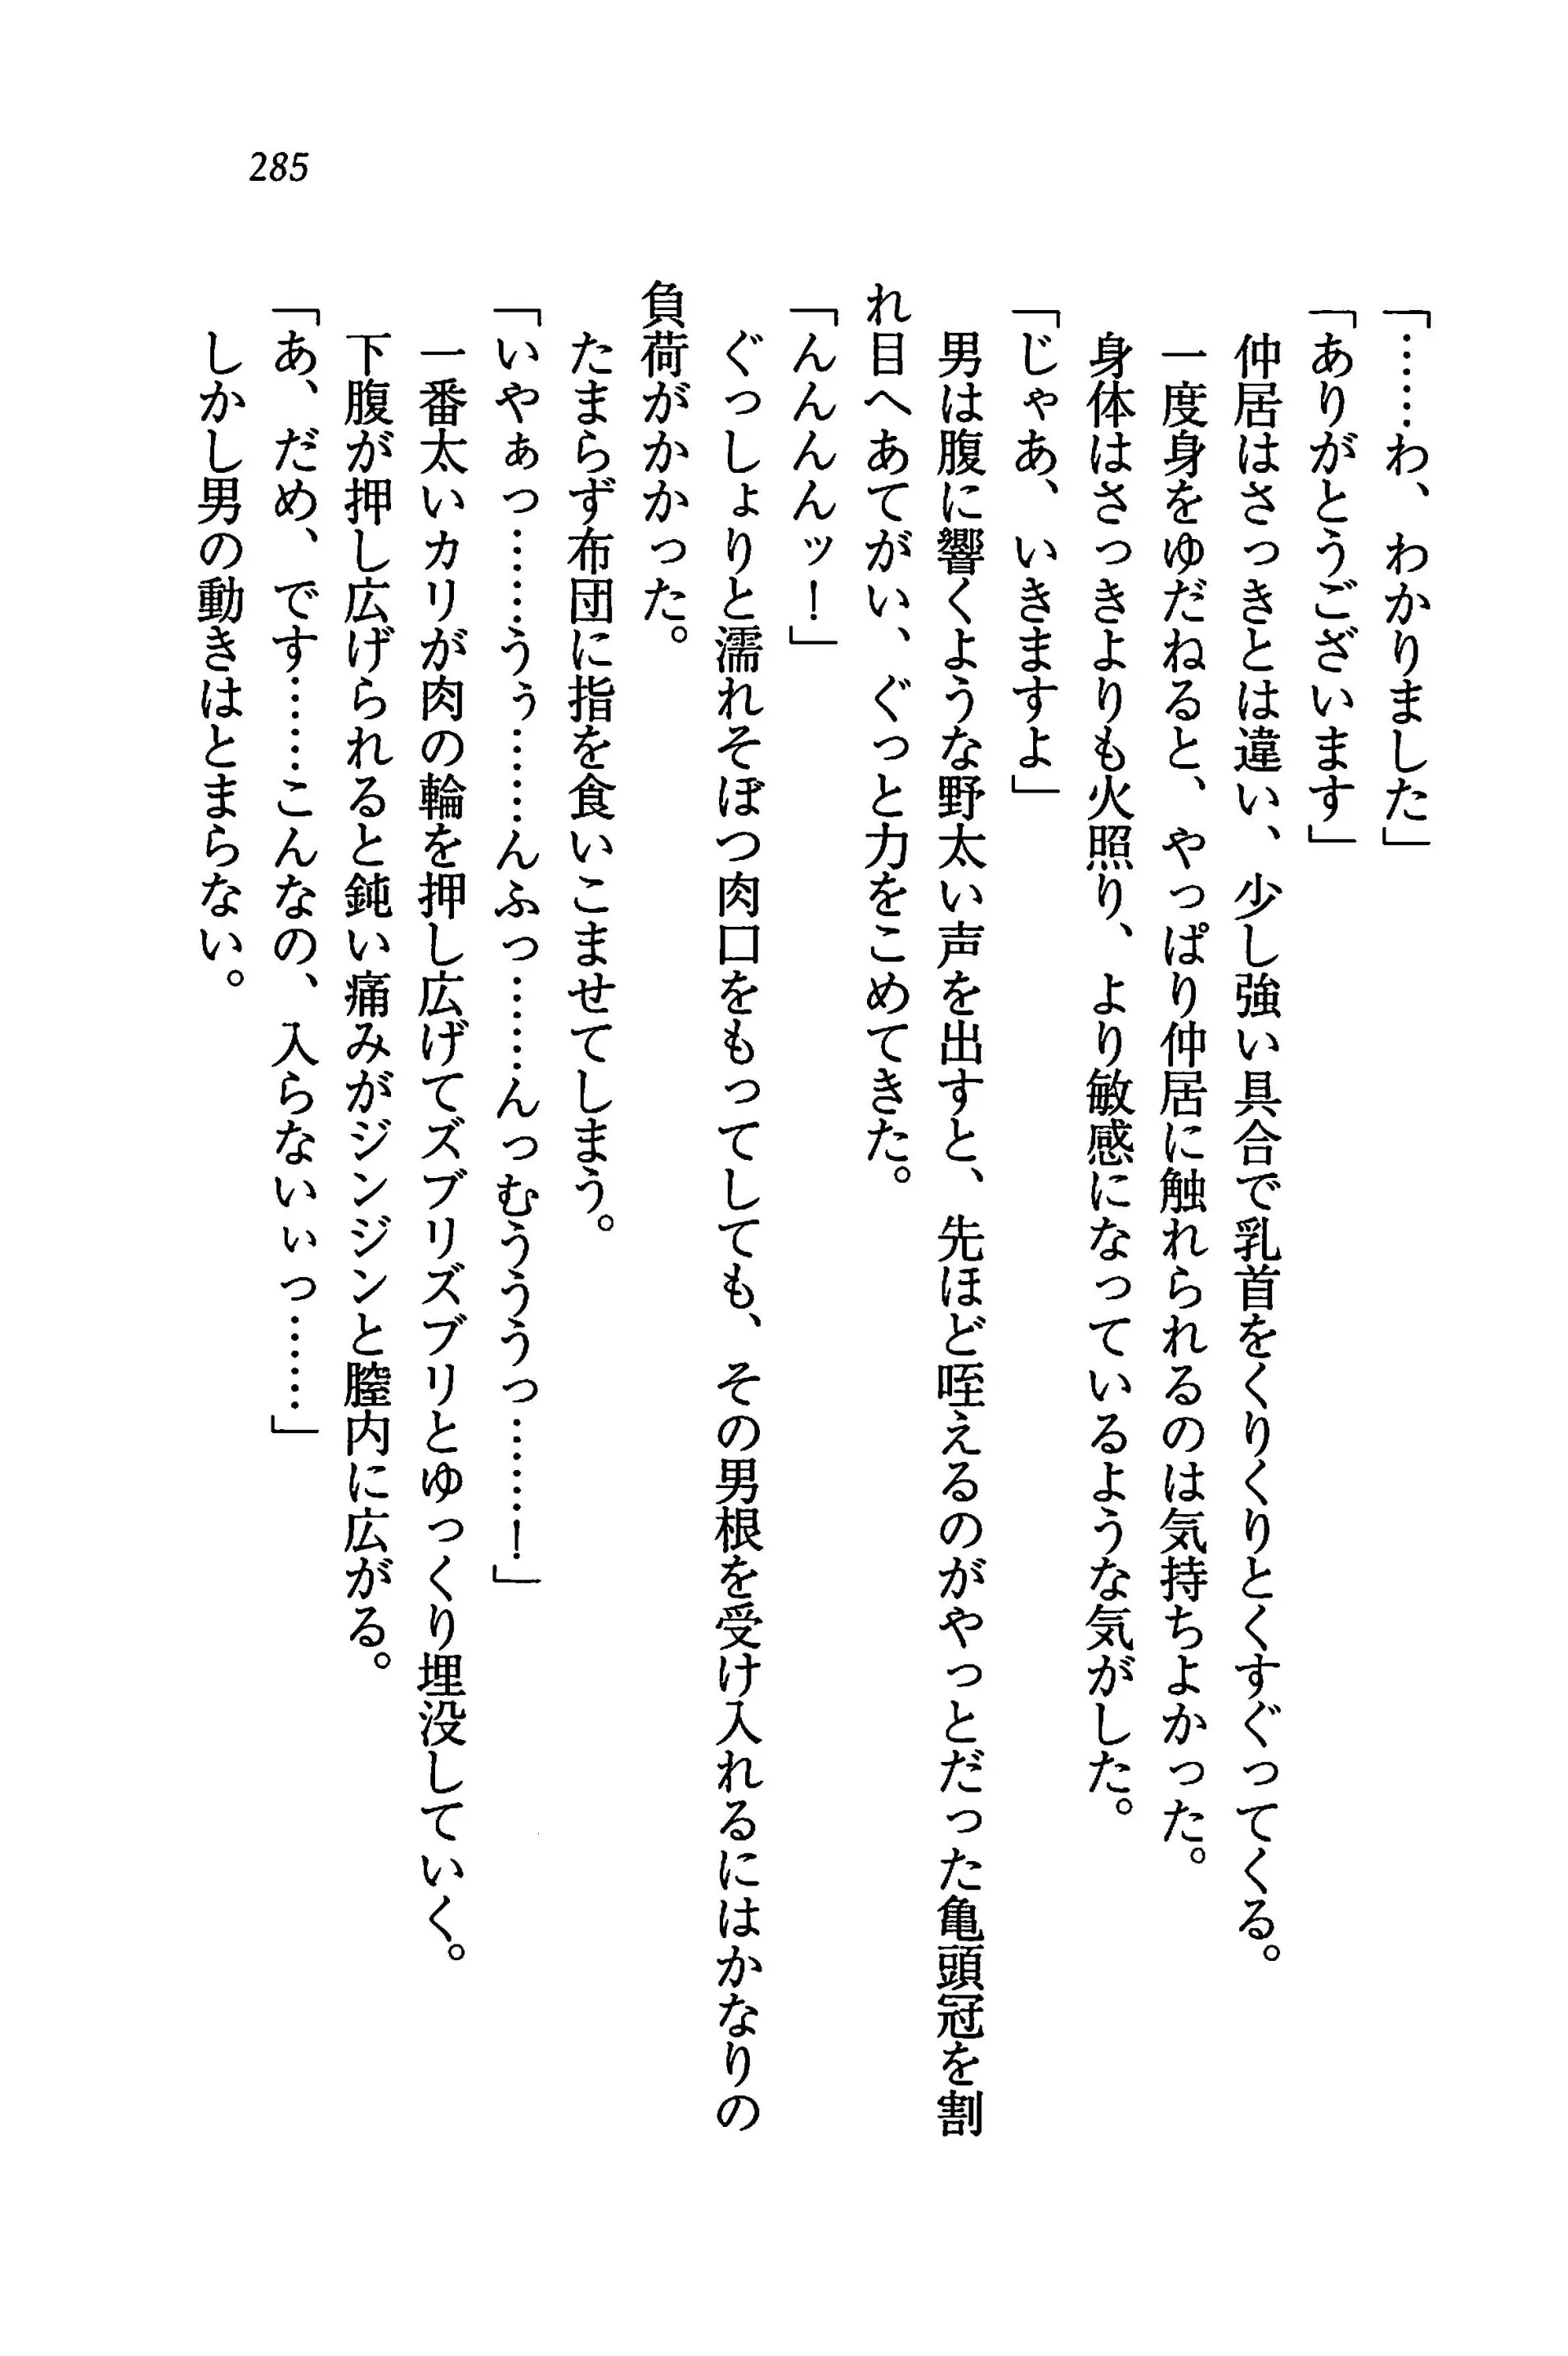 285
「……わ、わかりました」
「ありがとうございます」
仲居はさっきとは違い、少し強い具合で乳首をくりくりとくすぐってくる。
一度身をゆだねると、やっぱり仲居に触れられるのは気持ちよかった。
身体はさっきよりも火照り、より敏感になっているような気がした。
「じゃあ、いきますよ」
男は腹に響くような野太い声を出すと、先ほど咥えるのがやっとだった亀頭冠を割
れ目へあてがい、ぐっと力をこめてきた。
「んんんんッ！」
ぐっしょりと濡れそぼつ肉口をもってしても、その男根を受け入れるにはかなりの
負荷がかかった。
たまらず布団に指を食いこませてしまう。
「いやぁっ……うぅ……んふっ……んっむうううっ……！」
一番太いカリが肉の輪を押し広げてズブリズブリとゆっくり埋没していく。
下腹が押し広げられると鈍い痛みがジンジンと膣内に広がる。
「あ、だめ、です……こんなの、入らないぃっ……」
しかし男の動きはとまらない。